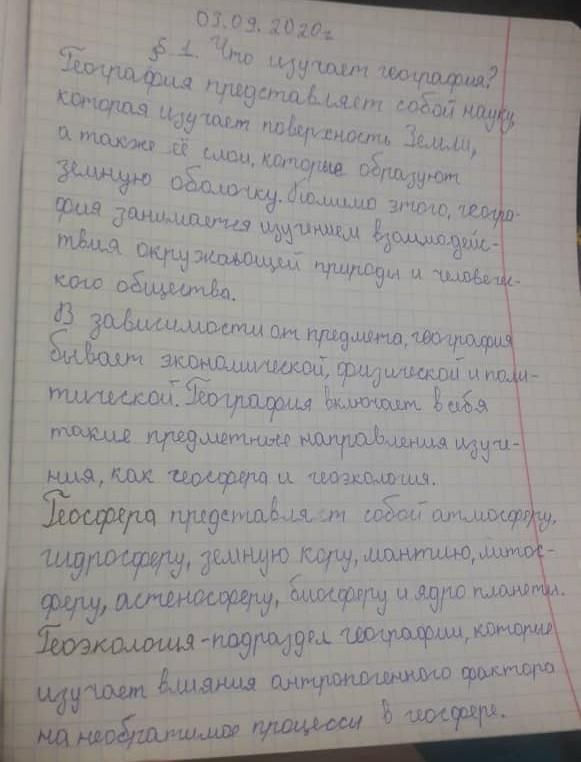 03.09.2020г
§ 1. Что изучает география?
География представляет собой науку,
которая изучает поверхность Земли,
а также её слои, которые образуют
земную оболочку. Помимо этого, геогра-
фия занимается изучением взаимодейс-
твия окружающей природы и человечес-
кого общества.
В зависимости от предмета, география
бывает экономической, физической и поли-
тической. География включает в себя
такие предметные направления изуче-
ния, как геосфера и геоэкология.
Геосфера представляет собой атмосферу,
гидросферу, земную кору, мантию, литос-
феру, астеносферу, биосферу и ядро планеты.
Геоэкология-подраздел географии, которые
изучает влияния антропогенного фактора
на необратимое процессы в геосфере.